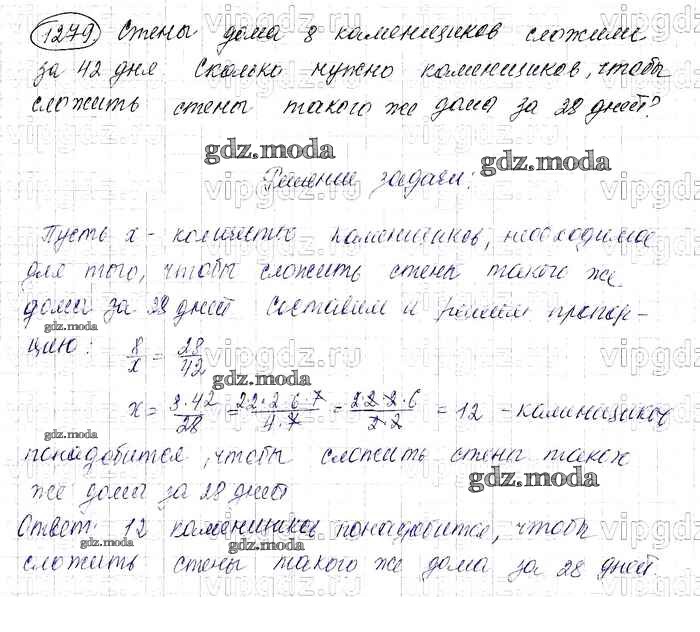 1279 Стены дома 8 каменщиков сложили
за 42 дня Сколько нужно каменщиков, чтобы
сложить стены такого же дома за 28 дней?
gdz.moda
gdz.moda
Решение задачи:
Пусть x - количество каменщиков, необходимое
для того, чтобы сложить стены такого же
дома за 28 дней Составим и решим пропор-
gdz.moda
цию: 8/x = 28/42
gdz.moda
x = 8·42/28 = 22·2·6·7/4·7 = 2·2·2·6/2·2 = 12 - каменщиков
gdz.moda
понадобится, чтобы сложить стены таких
же дома за 28 дней
gdz.moda
Ответ: 12 каменщиков понадобится, чтобы
gdz.moda
gdz.moda
сложить стены такого же дома за 28 дней.